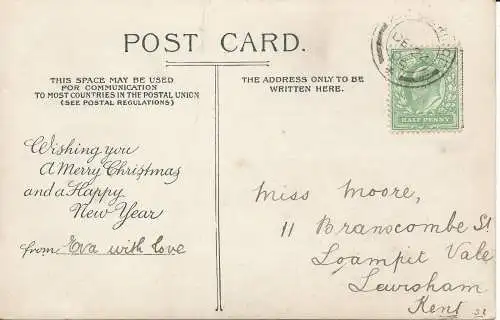 POST CARD.
THIS SPACE MAY BE USED
FOR COMMUNICATION
TO MOST COUNTRIES IN THE POSTAL UNION
(SEE POSTAL REGULATIONS)
THE ADDRESS ONLY TO BE
WRITTEN HERE.
HALF PENNY
Wishing you
A Merry Christmas
and a Happy
New Year
from Eva with love
Miss Moore,
11 Branscombe St
Loampit Vale
Lewisham
Kent